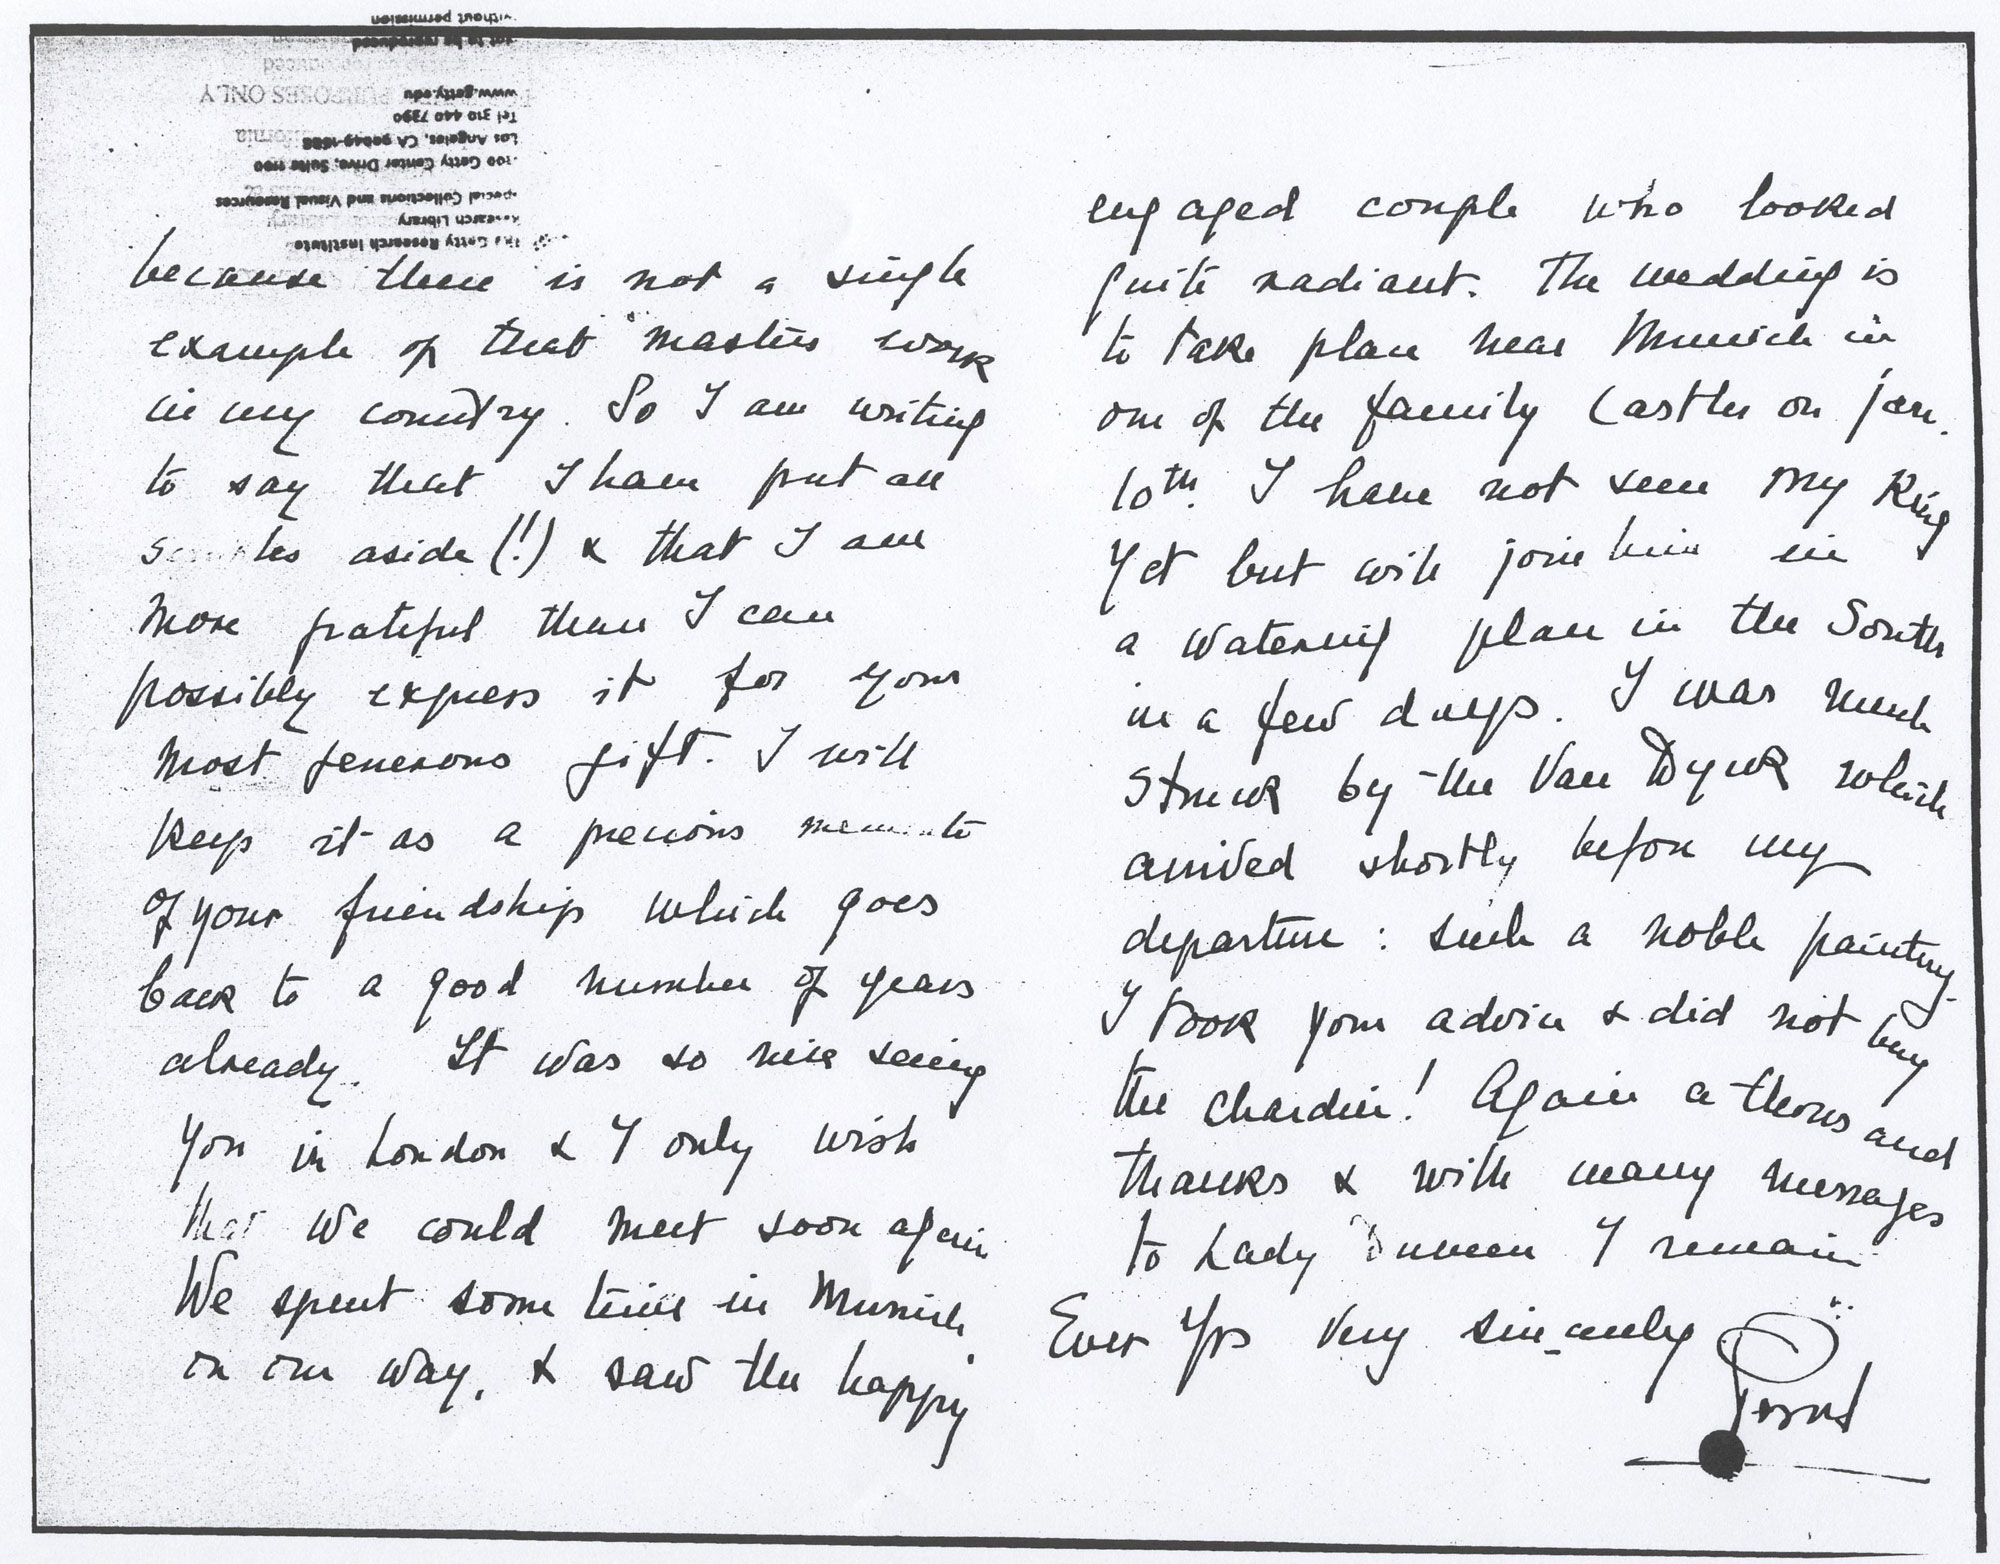 without permission
not to be reproduced
PURPOSES ONLY
www.getty.edu
Tel 310 440 7390
Los Angeles, CA 90049-1688
1200 Getty Center Drive, Suite 1100
Special Collections and Visual Resources
Research Library
The Getty Research Institute
because there is not a single
example of that masters work
in my country. So I am writing
to say that I have put all
scruples aside (!) & that I am
more grateful than I can
possibly express it for your
most generous gift. I will
keep it as a precious memento
of your friendship which goes
back to a good number of years
already. It was so nice seeing
you in London & I only wish
that we could meet soon again
We spent some time in Munich
on our way, & saw the happy
engaged couple who looked
quite radiant. The wedding is
to take place near Munich in
one of the family Castles on Jan.
10th. I have not seen my King
yet but will join him in
a watering place in the South
in a few days. I was much
struck by the Van Dyck which
arrived shortly before my
departure: such a noble painting.
I took your advice & did not buy
the Chardin! Again a thousand
thanks & with many messages
to Lady Duveen I remain
Ever Yrs very sincerely